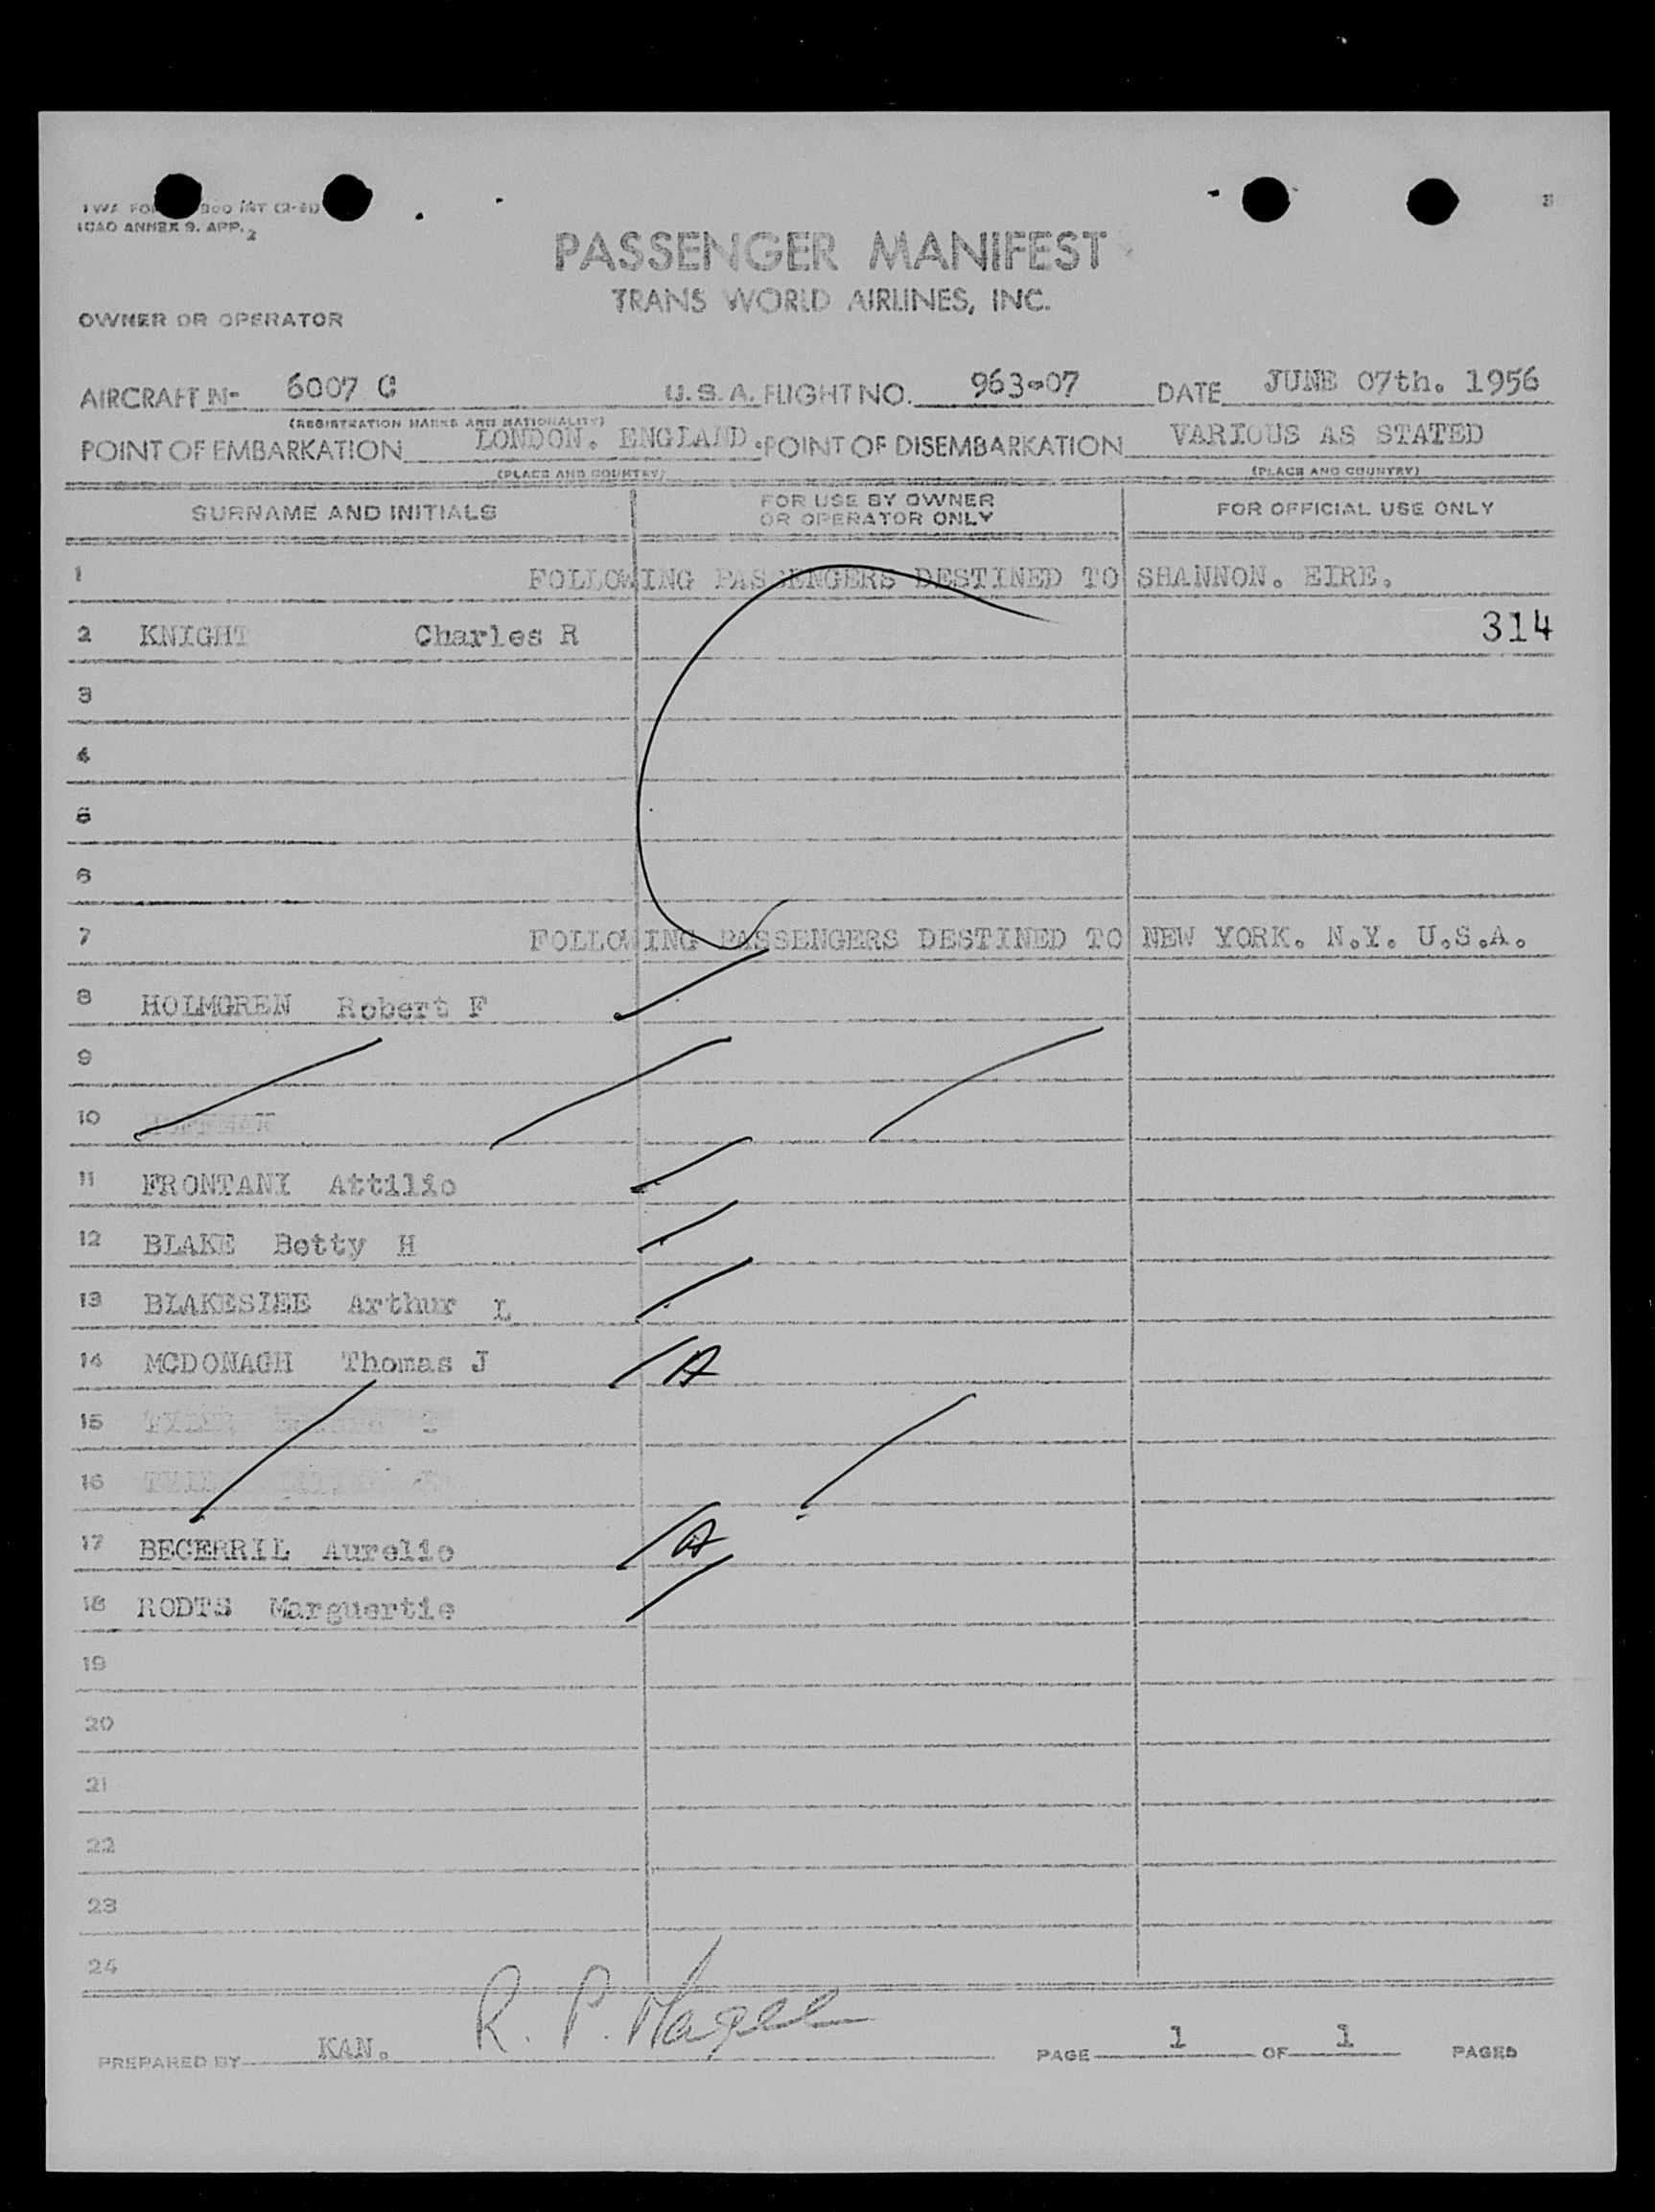 ICAO ANNEX 9. APP. 2
PASSENGER MANIFEST
TRANS WORLD AIRLINES, INC.
OWNER OR OPERATOR
AIRCRAFT N- 6007 C U.S.A. FLIGHT NO. 963-07 DATE JUNE 07th. 1956
(REGISTRATION MARKS AND NATIONALITY)
POINT OF EMBARKATION LONDON. ENGLAND. POINT OF DISEMBARKATION VARIOUS AS STATED
(PLACE AND COUNTRY) (PLACE AND COUNTRY)
SURNAME AND INITIALS FOR USE BY OWNER OR OPERATOR ONLY FOR OFFICIAL USE ONLY
1 FOLLOWING PASSENGERS DESTINED TO SHANNON. EIRE.
2 KNIGHT Charles R 314
3
4
5
6
7 FOLLOWING PASSENGERS DESTINED TO NEW YORK. N.Y. U.S.A.
8 HOLMGREN Robert F
9
10
11 FRONTANI Attilio
12 BLAKE Betty H
13 BLAKESLEE Arthur L
14 MCDONAGH Thomas J A
15
16
17 BECERRIL Aurelio A
18 RODTS Marguertie
19
20
21
22
23
24
PREPARED BY KAN. R. P. Magee PAGE 1 OF 1 PAGES